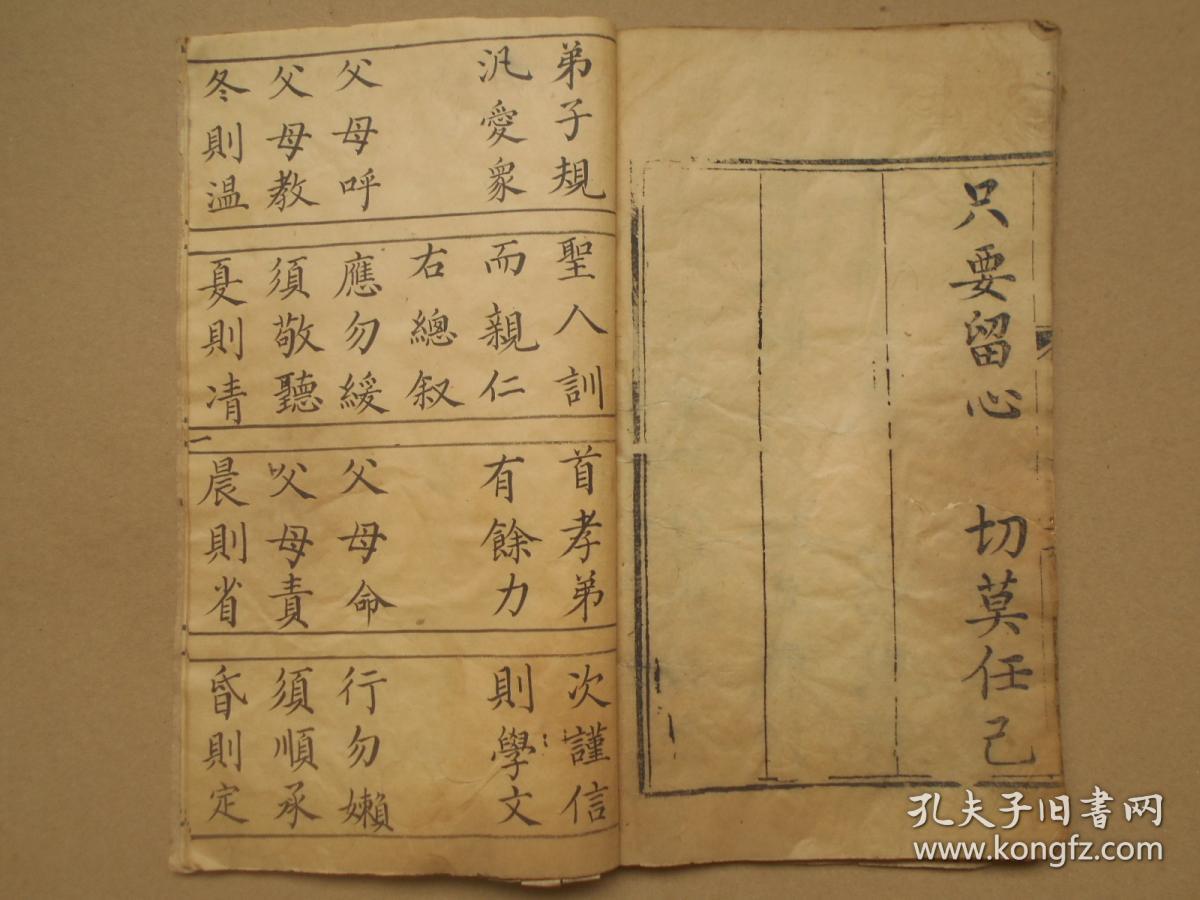 只要留心 切莫任己
弟子規 聖人訓 首孝弟 次謹信
汎愛衆 而親仁 有餘力 則學文
右總叙
父母呼 應勿緩 父母命 行勿嬾
父母教 須敬聽 父母責 須順承
冬則温 夏則凊 晨則省 昏則定
孔夫子旧书网
www.kongfz.com